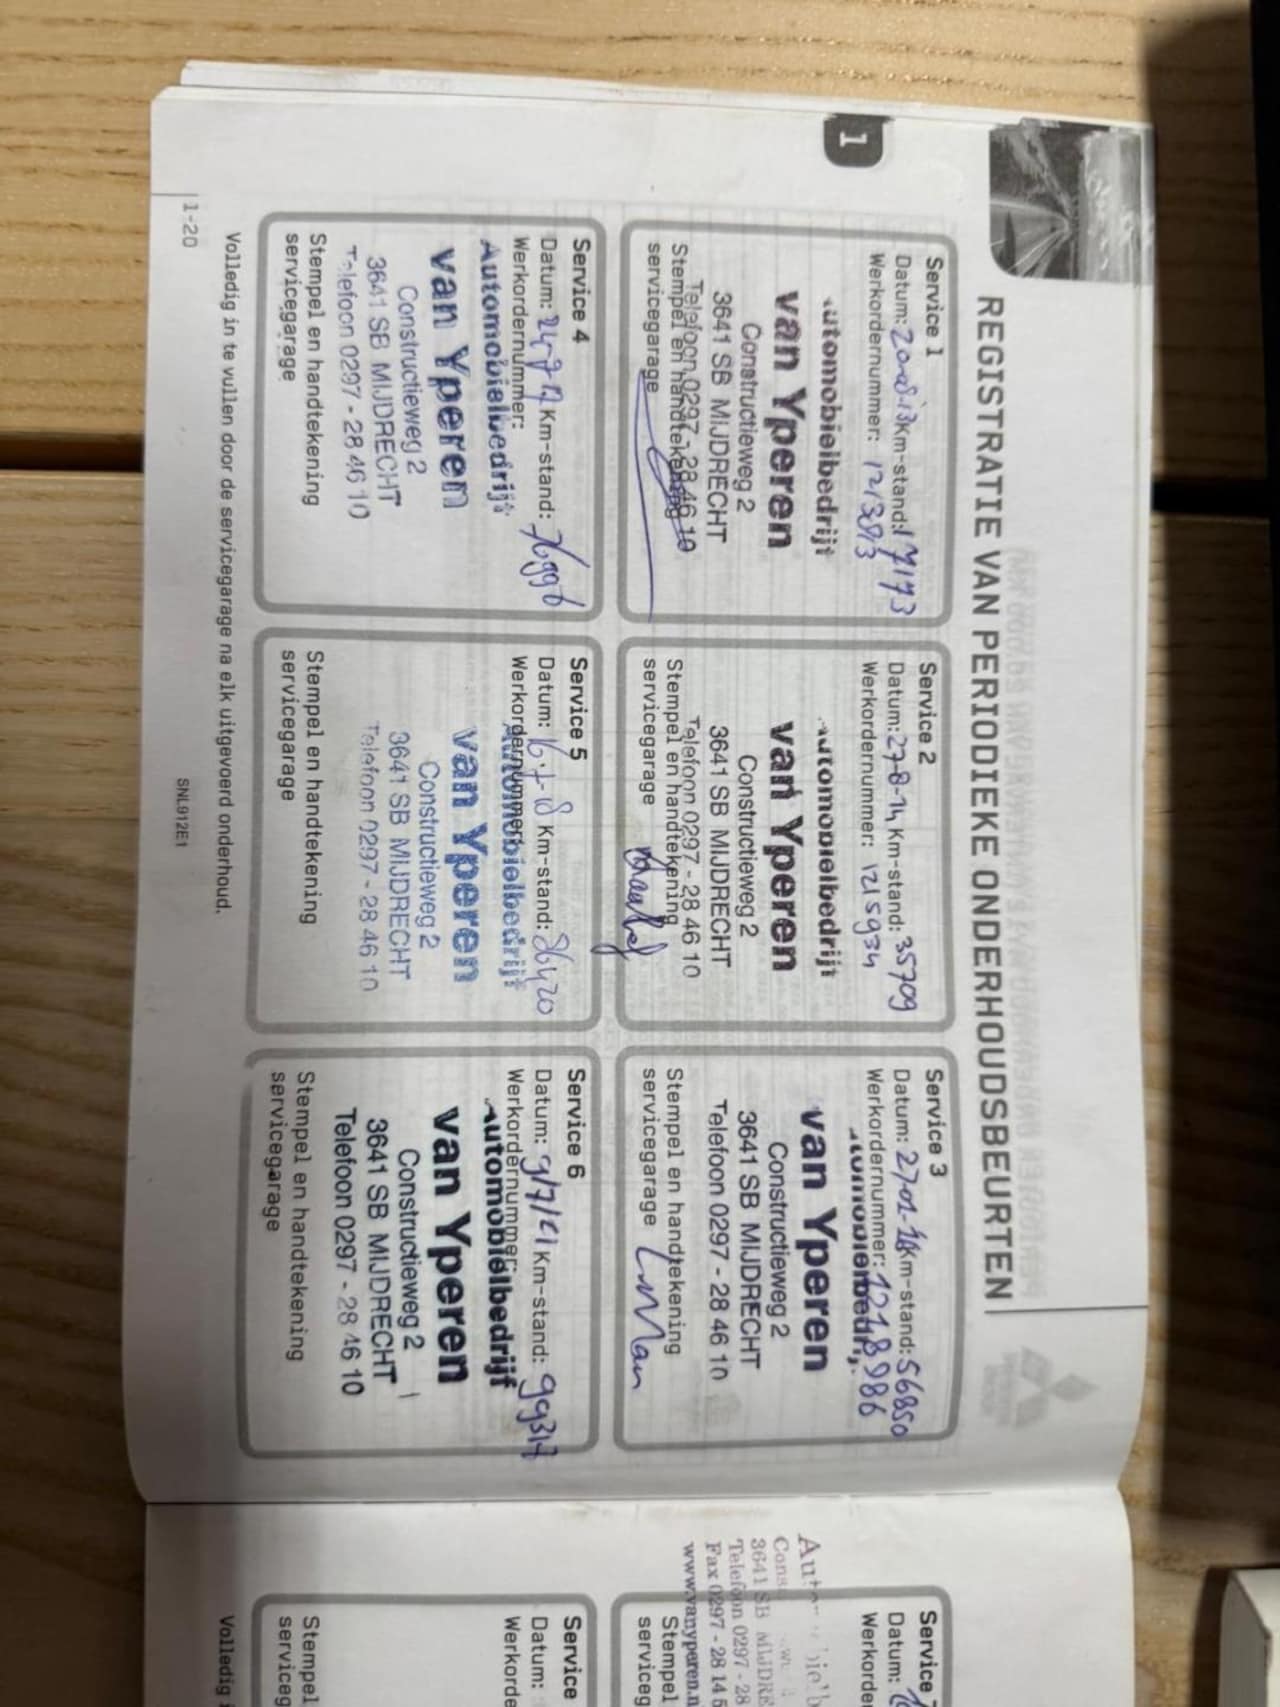 1
REGISTRATIE VAN PERIODIEKE ONDERHOUDSBEURTEN
Service 1
Datum: 20-08-13 Km-stand: 17173
Werkordernummer: 1213813
Automobielbedrijf
van Yperen
Constructieweg 2
3641 SB MIJDRECHT
Telefoon 0297 - 28 46 10
Stempel en handtekening
servicegarage
Service 2
Datum: 27-8-14 Km-stand: 35709
Werkordernummer: 1215934
Automobielbedrijf
van Yperen
Constructieweg 2
3641 SB MIJDRECHT
Telefoon 0297 - 28 46 10
Stempel en handtekening
servicegarage
Service 3
Datum: 27-01-16 Km-stand: 56850
Werkordernummer: 1218986
Automobielbedrijf
van Yperen
Constructieweg 2
3641 SB MIJDRECHT
Telefoon 0297 - 28 46 10
Stempel en handtekening
servicegarage
Service 4
Datum: Km-stand: 76996
Werkordernummer:
Automobielbedrijf
van Yperen
Constructieweg 2
3641 SB MIJDRECHT
Telefoon 0297 - 28 46 10
Stempel en handtekening
servicegarage
Service 5
Datum: 16-7-18 Km-stand: 86420
Werkordernummer:
Automobielbedrijf
van Yperen
Constructieweg 2
3641 SB MIJDRECHT
Telefoon 0297 - 28 46 10
Stempel en handtekening
servicegarage
Service 6
Datum: 9/7/21 Km-stand: 99317
Werkordernummer:
Automobielbedrijf
van Yperen
Constructieweg 2
3641 SB MIJDRECHT
Telefoon 0297 - 28 46 10
Stempel en handtekening
servicegarage
Volledig in te vullen door de servicegarage na elk uitgevoerd onderhoud.
1-20
SNL912E1
Service 7
Datum:
Werkorde
3641 SB MIJDRE
Telefoon 0297 - 28
Fax 0297 - 28 14 5
www.vanyperen.n
Stempel
serviceg
Service
Datum:
Werkorde
Stempel
serviceg
Volledig i